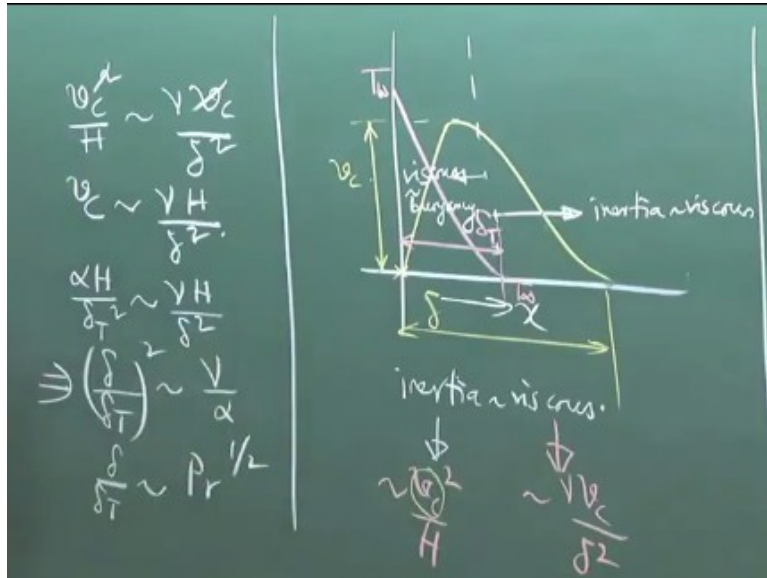 v_c^2/H ~ ν v_c/δ^2
v_c ~ ν H/δ^2.
α H/δ_T^2 ~ ν H/δ^2
⇒ (δ/δ_T)^2 ~ ν/α
δ/δ_T ~ Pr^1/2
T_w
v_c
viscous
~ buoyancy
δ_T
inertia ~ viscous
T_∞
δ
x
inertia ~ viscous.
~ v_c^2/H
~ ν v_c/δ^2